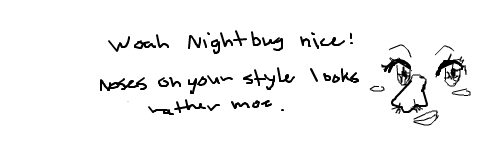 Woah Nightbug nice!
Noses on your style looks
rather moe.